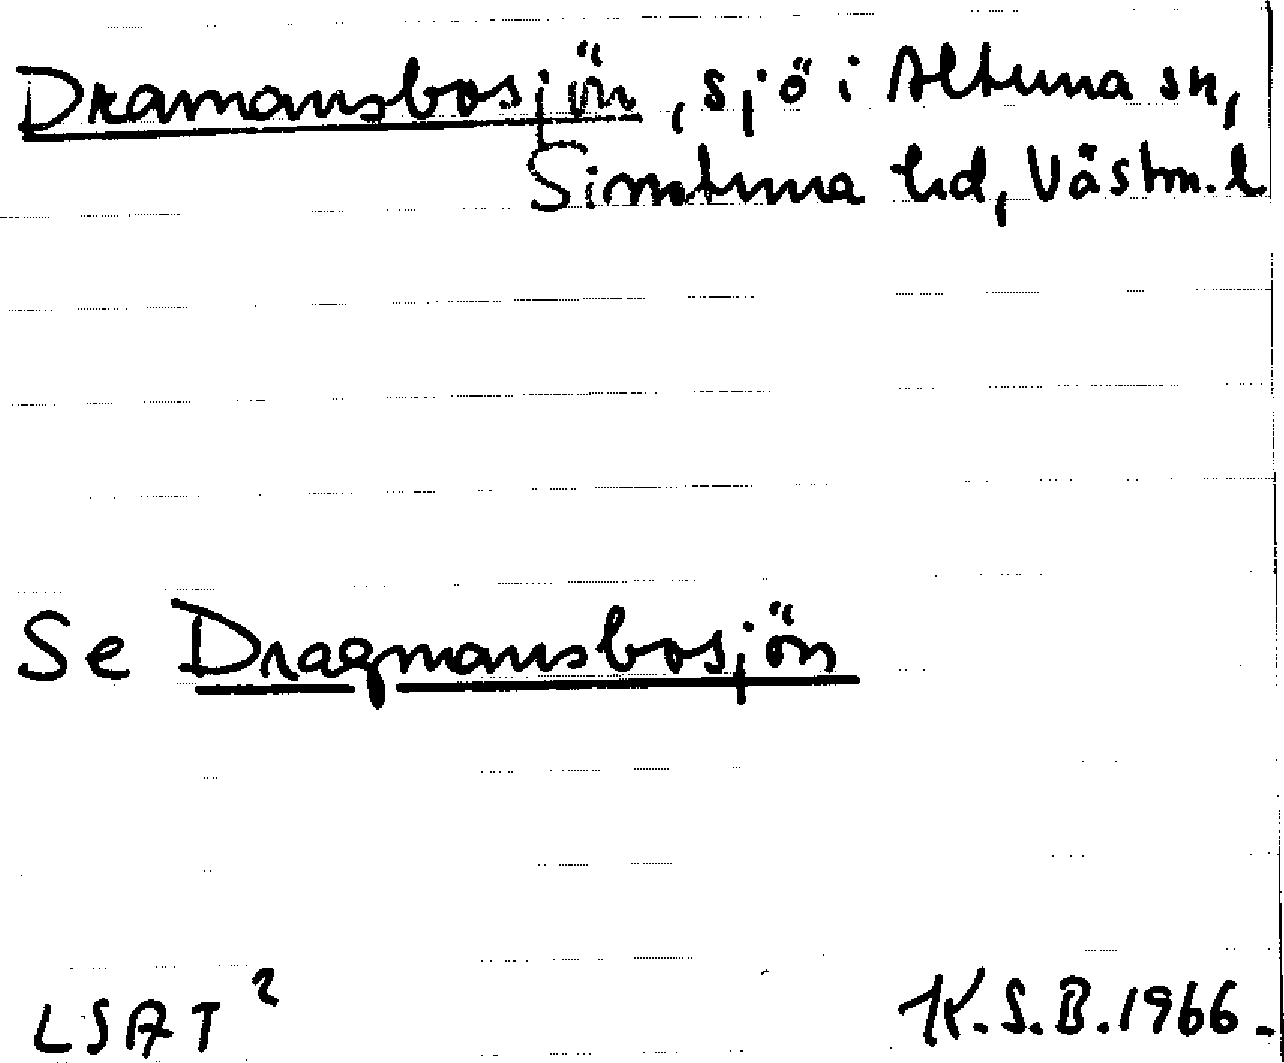 Dramansbosjön, sjö i Altuna sn,
Simtuna hd, Västm. l
Se Dragmansbosjön
LSAT ²
K.S.B. 1966.